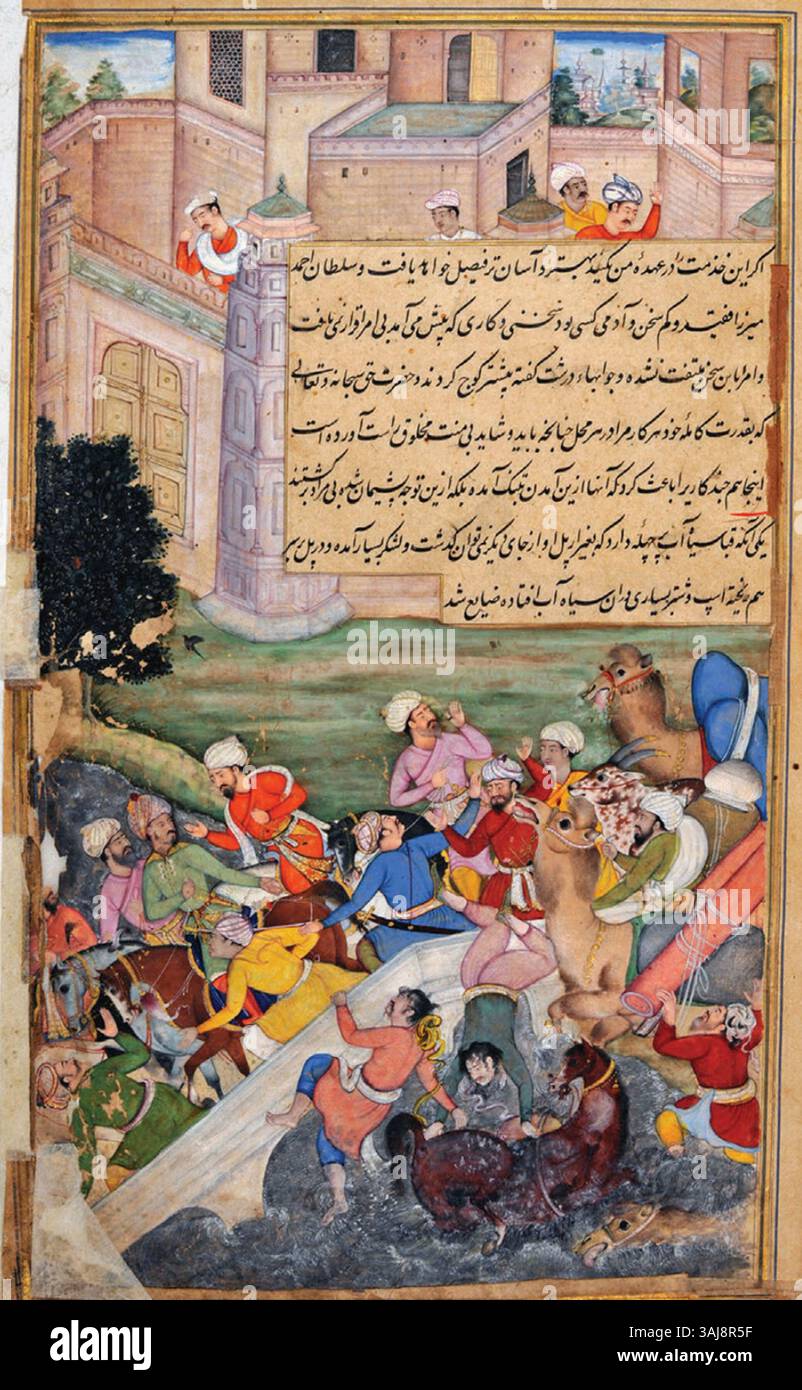 اگر این خدمت را در عهدهٔ من کنید بهتر و آسان تر فیصل خواهد یافت و سلطان احمد
میرزا فقیر و کم سخن و آدمی کسی بود سخنی و کاری که پیش می آمد بی امرا قرار نمی یافت
و امرا باین سخن ملتفت نشده و جوابهاء درشت گفته پیشتر کوچ کردند و حضرت حق سبحانه و تعالی
که بقدرت کاملهٔ خود هر کار مرا در هر محل چنانچه باید و شاید بی منت مخلوق راست آورده است
اینجا هم چند کاریرا باعث کرد که آنها ازین آمدن بتنک آمده بلکه ازین توجه پشیمان شده بی مراد برگشتند
یکی آنکه قبا سیاه آب پر چهله دارد که بغیر از پل او از جای دیگر نمی توان گذشت و لشکر بسیار آمده و در پل بر سر
هم ریخته اسپ و شتر بسیاری دران سیاه آب افتاده ضایع شد
alamy
alamy
Image ID: 3AJ8R5F
www.alamy.com